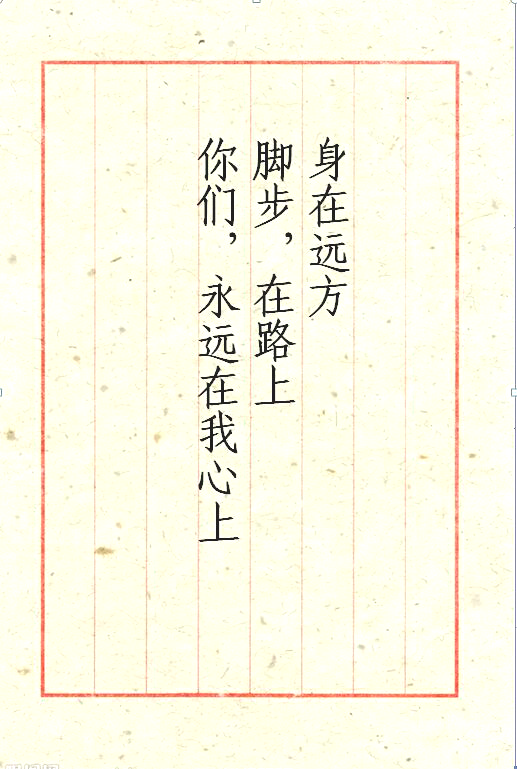 身在远方
脚步，在路上
你们，永远在我心上